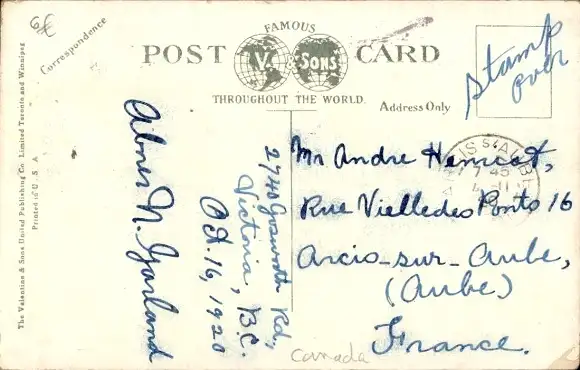 6€
Correspondence
FAMOUS
POST CARD
V. & SONS
THROUGHOUT THE WORLD.
Address Only
Stamp
over
The Valentine & Sons United Publishing Co. Limited Toronto and Winnipeg
Printed in U.S.A
Abner N. Garland
2740 Gosworth Rd.,
Victoria, B.C.
Oct. 16, 1920
Canada
ARCIS S. AUBE
7 45
Mr Andre Henriot,
Rue Vielledes Ponts 16
Arcis-sur-Aube,
(Aube)
France.